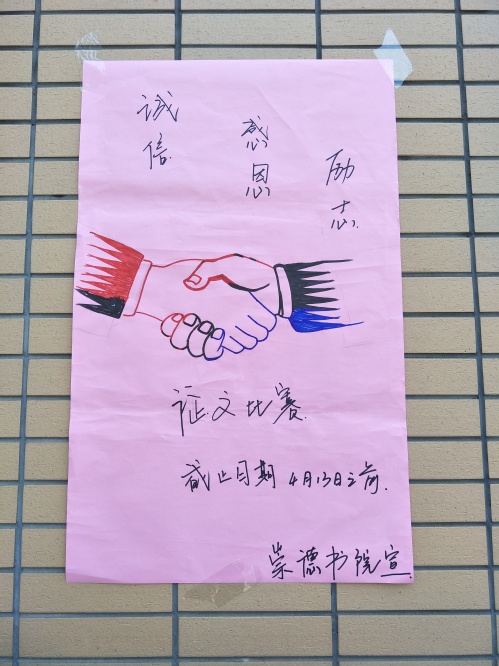 诚信
感恩
励志
征文比赛
截止日期 4月13日之前.
崇德书院宣.